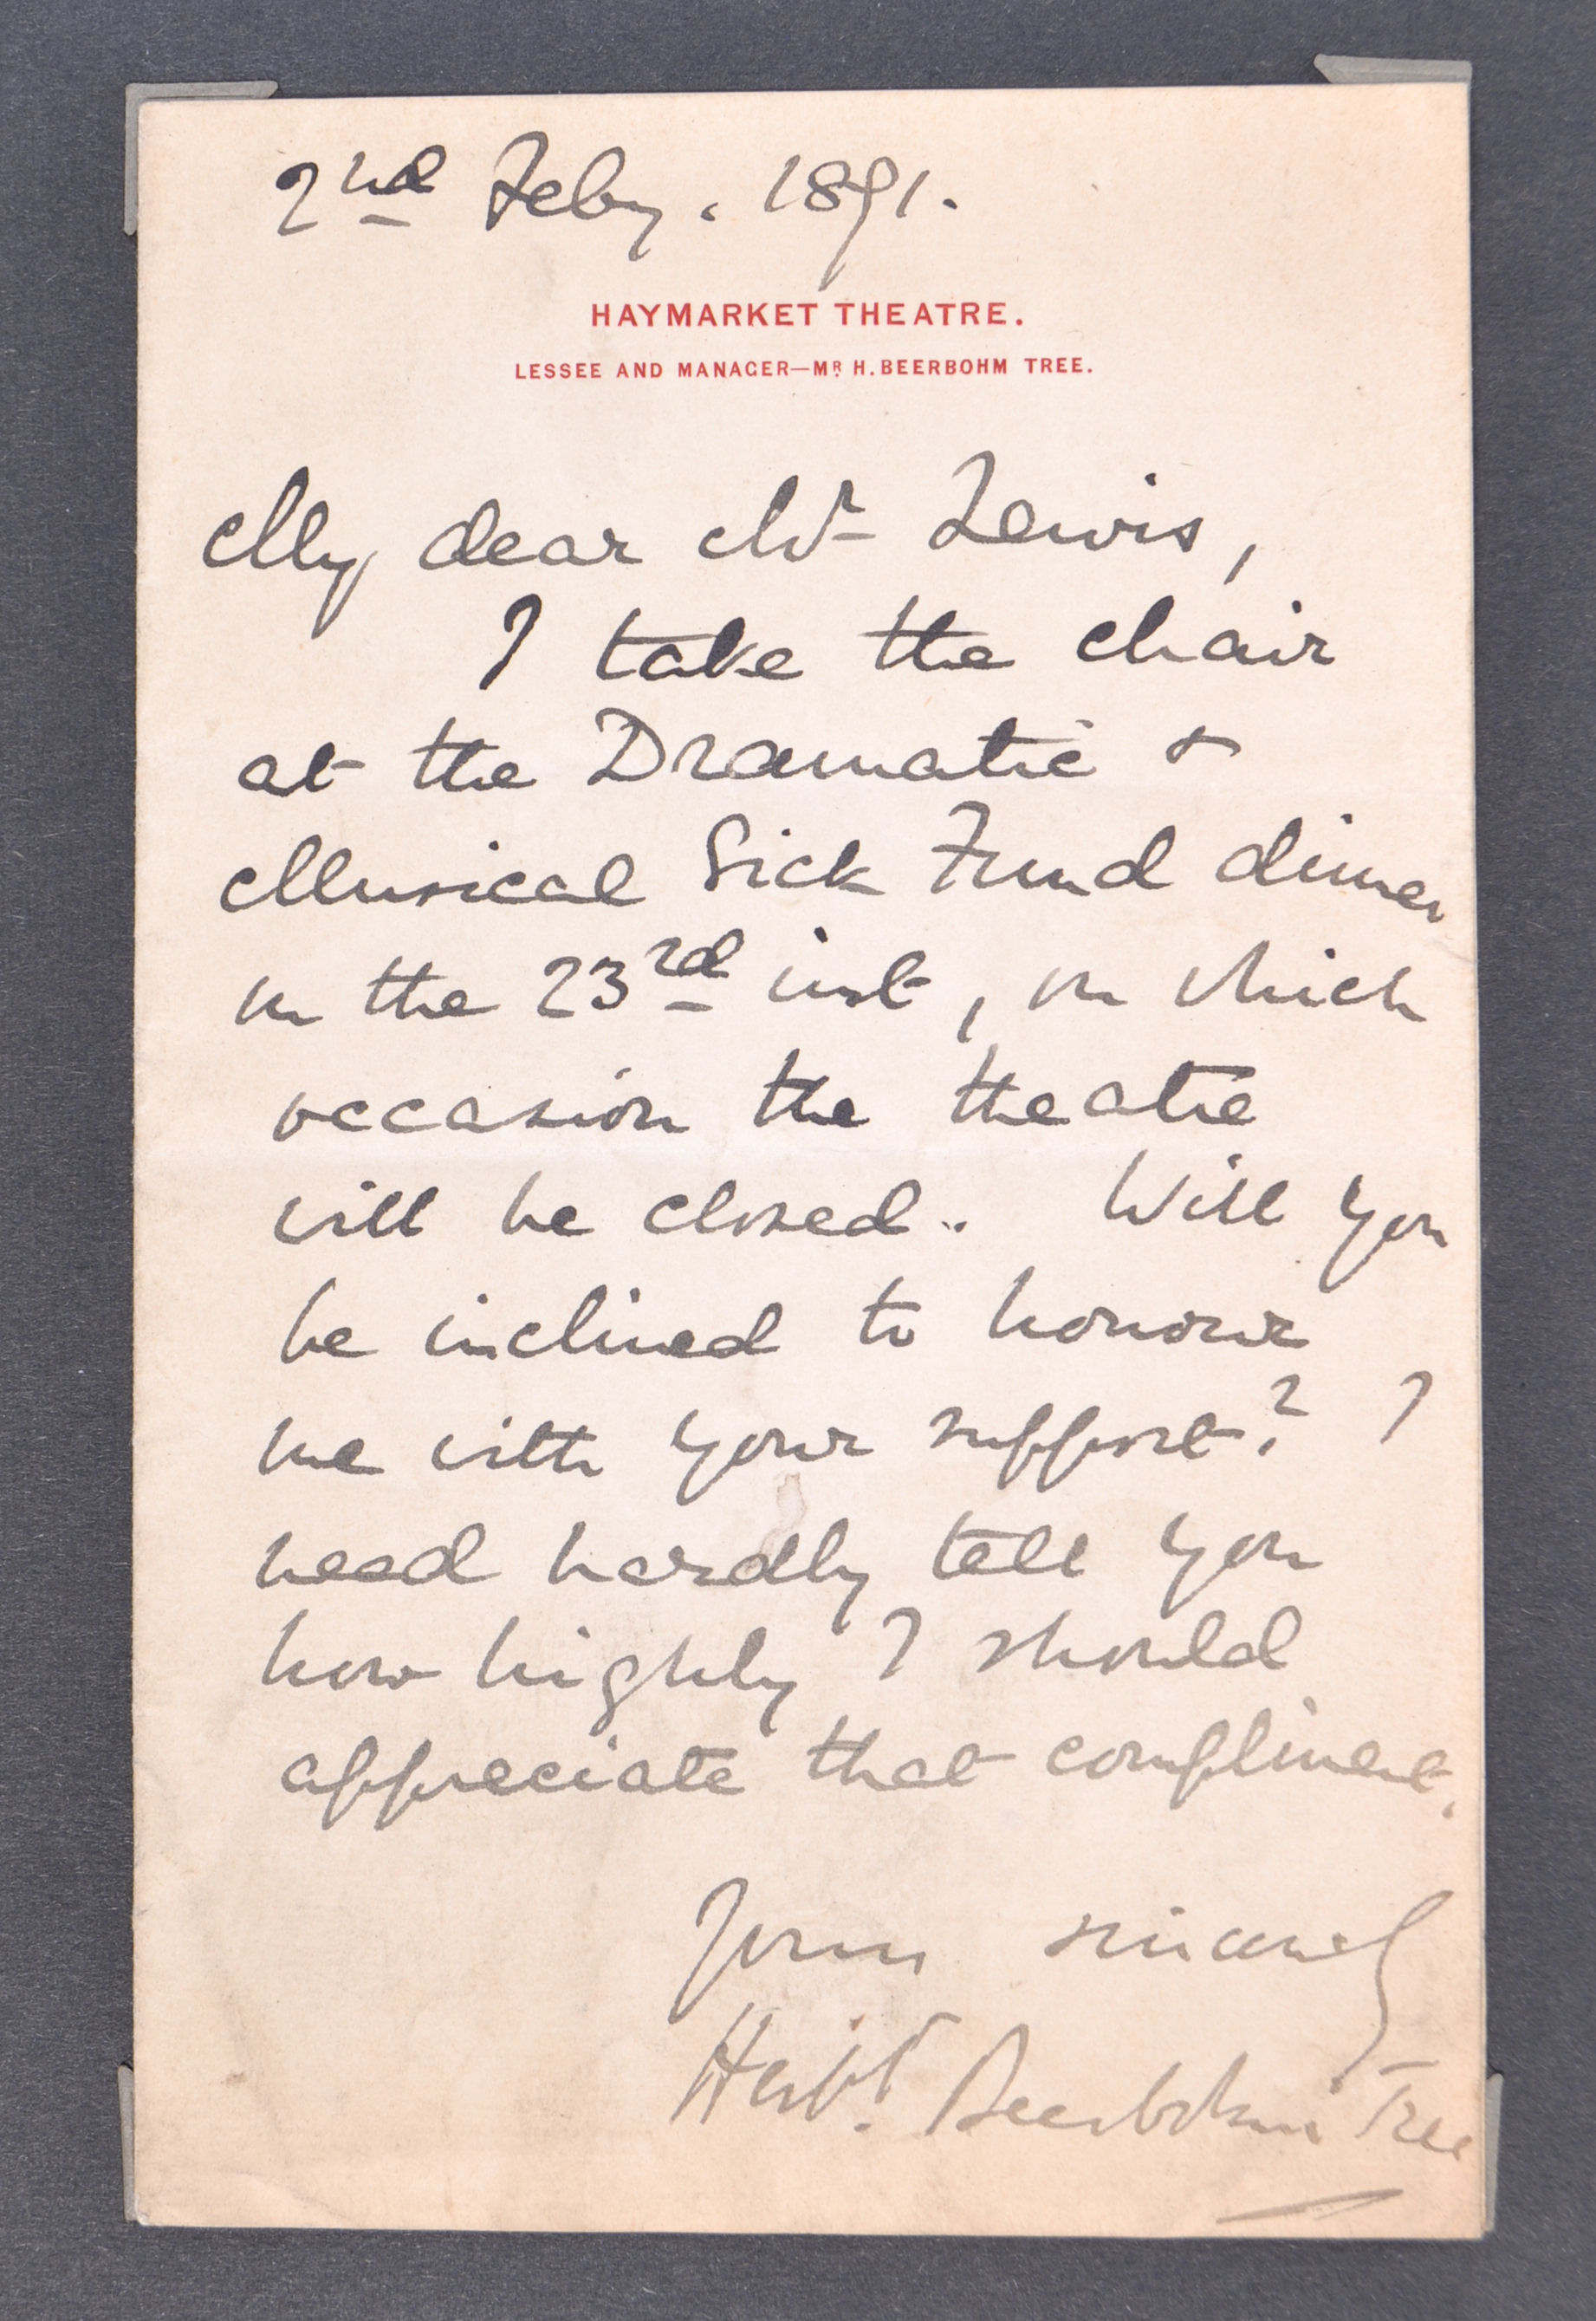 2nd Feby. 1891.
HAYMARKET THEATRE.
LESSEE AND MANAGER—MR H. BEERBOHM TREE.
My dear Mr Lewis,
I take the chair
at the Dramatic &
Musical Sick Fund dinner
on the 23rd inst, on which
occasion the theatre
will be closed. Will you
be inclined to honour
me with your support? I
need hardly tell you
how highly I should
appreciate that compliment.
Yours sincerely
Herbt. Beerbohm Tree